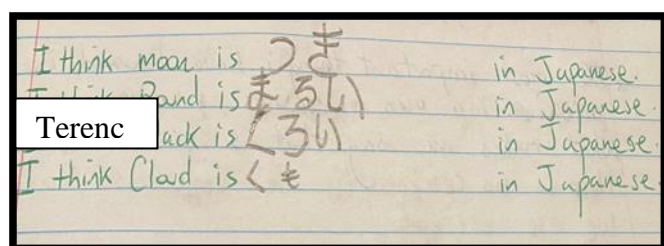 I think moon is つき in Japanese.
I think Round is まるい in Japanese.
Terenc ack is くろい in Japanese.
I think Cloud is くも in Japanese.